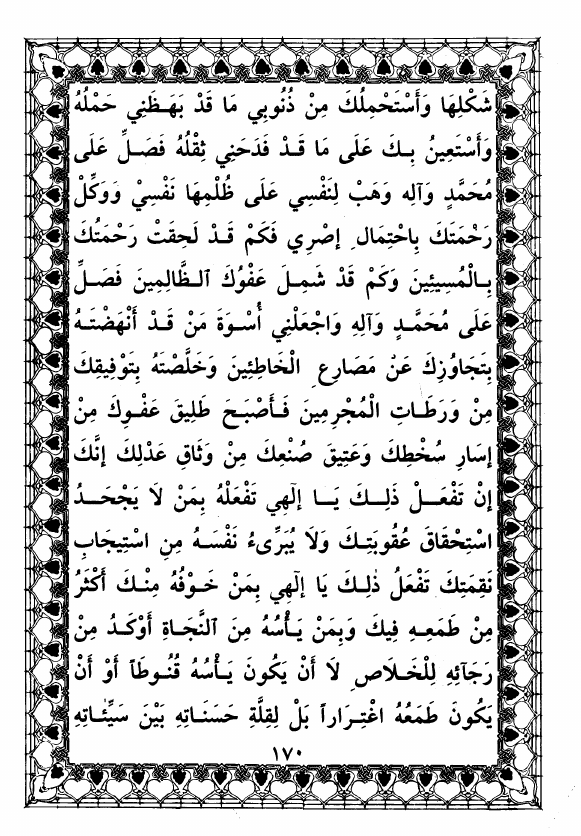 شَكْلِهَا وَأَسْتَحْمِلُكَ مِنْ ذُنُوبِي مَا قَدْ بَهَظَنِي حَمْلُهُ
وَأَسْتَعِينُ بِـكَ عَلَى مَا قَـدْ فَدَحَنِي ثِقْلُهُ فَصَـلِّ عَلَى
مُحَمَّدٍ وَآلِهِ وَهَبْ لِنَفْسِي عَلَى ظُلْمِهَا نَفْسِيْ وَوَكِّلْ
رَحْمَتَكَ بِاحْتِمَالِ إِصْرِي فَكَمْ قَـدْ لَحِقَتْ رَحْمَتُكَ
بِـالْمُسِيئِينَ وَكَمْ قَدْ شَمِلَ عَفْوُكَ الـظَّالِمِينَ فَصَـلِّ
عَلَى مُحَمَّـدٍ وَآلِهِ وَاجْعَلْنِي أُسْوَةَ مَنْ قَـدْ أَنْهَضْتَـهُ
بِتَجَاوُزِكَ عَنْ مَصَارِعِ الْخَاطِئِينَ وَخَلَّصْتَهُ بِتَوْفِيقِكَ
مِنْ وَرَطَـاتِ الْمُجْرِمِينَ فَـأَصْبَـحَ طَلِيقَ عَفْـوِكَ مِنْ
إِسَارِ سُخْطِكَ وَعَتِيقَ صُنْعِكَ مِنْ وَثَاقِ عَدْلِكَ إِنَّكَ
إِنْ تَفْعَـلْ ذَلِـكَ يَـا إِلٰهِي تَفْعَلْهُ بِمَنْ لَا يَجْحَـدُ
اسْتِحْقَاقَ عُقُوبَتِـكَ وَلَا يُبَرِّىءُ نَفْسَـهُ مِنِ اسْتِيجَابِ
نَقِمَتِكَ تَفْعَلُ ذٰلِـكَ يَا إِلٰهِي بِمَنْ خَـوْفُهُ مِنْـكَ أَكْثَرُ
مِنْ طَمَعِـهِ فِيكَ وَبِمَنْ يَـأْسُهُ مِنَ الـنَّجَـاةِ أَوْكَـدُ مِنْ
رَجَائِهِ لِلْخَـلَاصِ لَا أَنْ يَكُونَ يَـأْسُهُ قُنُـوطاً أَوْ أَنْ
يَكُونَ طَمَعُهُ اغْتِـرَاراً بَلْ لِقِلَّةِ حَسَنَـاتِهِ بَيْنَ سَيِّئَاتِهِ
١٧٠